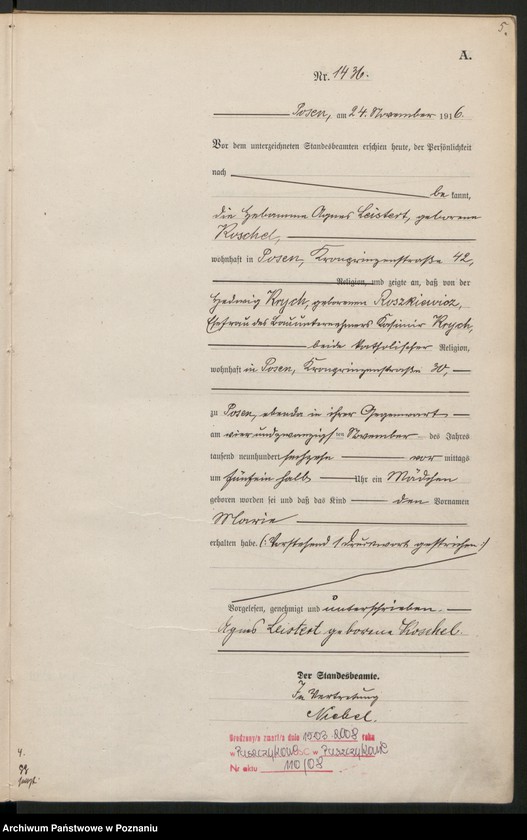 5.
A.
Nr. 1436.
Posen, am 24. November 1916.
Vor dem unterzeichneten Standesbeamten erschien heute, der Persönlichkeit
nach
bekannt,
die Hebamme Agnes Leistert, geborene
Koschel,
wohnhaft in Posen, Kronprinzenstraße 42,
Religion, und zeigte an, daß von der
Hedwig Krych, geborenen Roszkiewicz,
Ehefrau des Bauunternehmers Kasimir Krych,
beide katholischer Religion,
wohnhaft in Posen, Kronprinzenstraße 30,
zu Posen, ebenda in ihrer Gegenwart
am vierundzwanzigsten November des Jahres
tausend neunhundert sechzehn vormittags
um fünfeinhalb Uhr ein Mädchen
geboren worden sei und daß das Kind den Vornamen
Marie
erhalten habe. (: Vorstehend 1 Druckwort gestrichen :)
Vorgelesen, genehmigt und unterschrieben.
Agnes Leistert geborene Koschel.
Der Standesbeamte.
In Vertretung
Niebel.
Urodzony/a zmarł/a dnia 15.03.2008 roku
w Puszczykowo USC w Puszczykowie
Nr aktu 110/08
4.
Archiwum Państwowe w Poznaniu